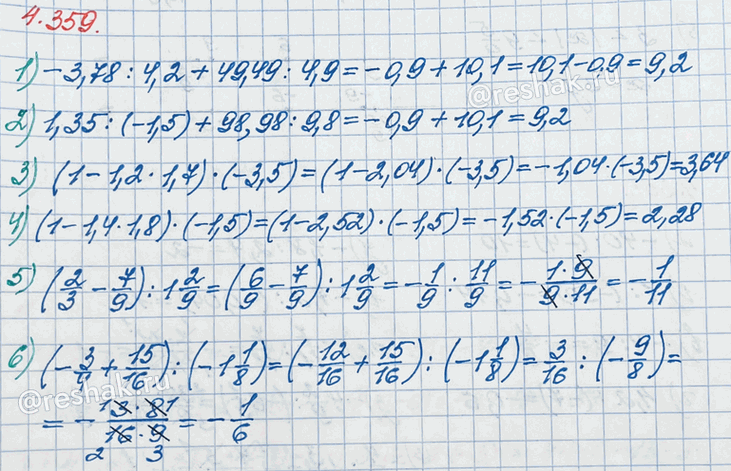 4.359.
1) −3,78 : 4,2 + 49,49 : 4,9 = −0,9 + 10,1 = 10,1 − 0,9 = 9,2
@reshak.ru
2) 1,35 : (−1,5) + 98,98 : 9,8 = −0,9 + 10,1 = 9,2
3) (1 − 1,2 · 1,7) · (−3,5) = (1 − 2,04) · (−3,5) = −1,04 · (−3,5) = 3,64
4) (1 − 1,4 · 1,8) · (−1,5) = (1 − 2,52) · (−1,5) = −1,52 · (−1,5) = 2,28
5) (2/3 − 7/9) : 1 2/9 = (6/9 − 7/9) : 1 2/9 = −1/9 : 11/9 = −(1 · 9)/(9 · 11) = −1/11
6) (−3/4 + 15/16) : (−1 1/8) = (−12/16 + 15/16) : (−1 1/8) = 3/16 : (−9/8) =
@reshak.ru
@reshak.ru
= −(1 3 · 8 1)/(16 · 9) = −1/6
2 3